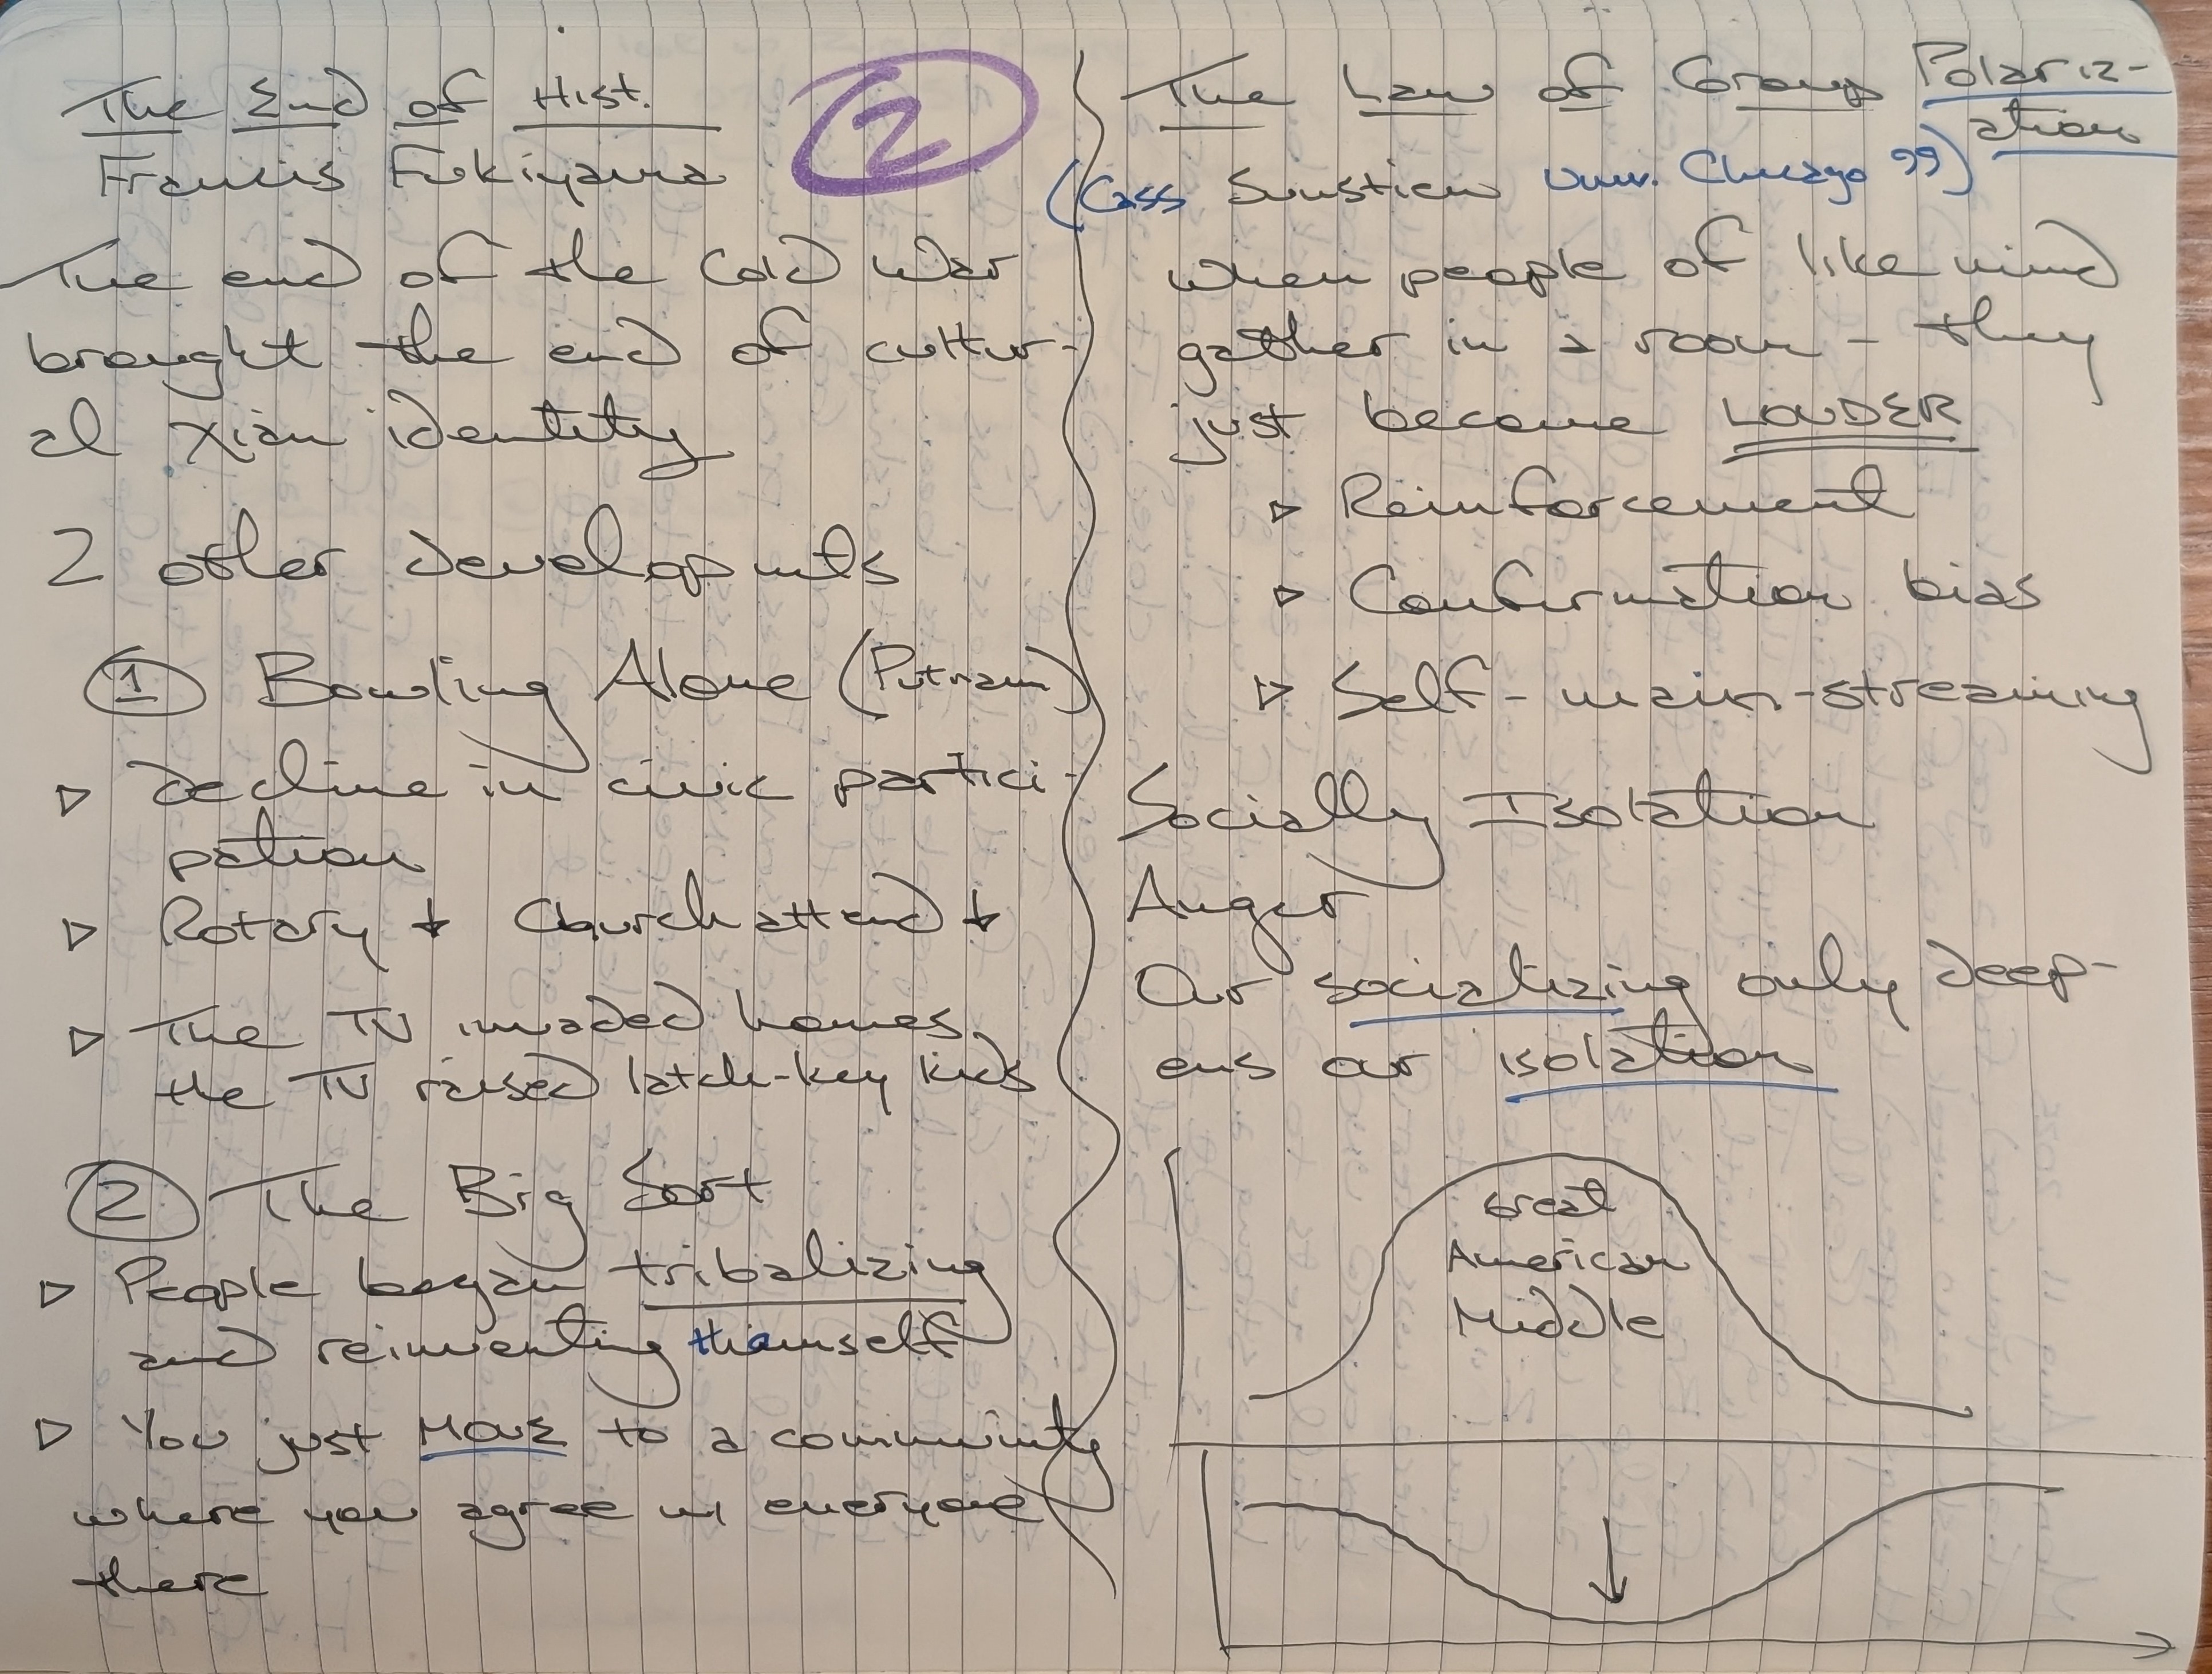 The End of Hist.
2
Francis Fukiyama
The end of the Cold War
brought the end of cultur-
al Xian identity
2 other developmts
1 Bowling Alone (Putnam)
▹ Decline in civic partici-
pation
▹ Rotary ↓ Church attend ↓
▹ The TV invaded homes,
the TV raised latch-key kids
2 The Big Sort
▹ People began tribalizing
and reinventing themself
▹ You just MOVE to a community
where you agree w/ everyone
there
The Law of Group Polariz-
ation
(Cass Sunstien Univ. Chicago 99)
When people of like mind
gather in a room - they
just become LOUDER
▹ Reinforcement
▹ Confirmation bias
▹ Self-main-streaming
Socially Isolation
Anger
Our socializing only deep-
ens our isolation
Great
American
Middle